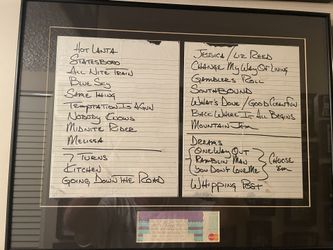 HOT LANTA
STATESBORO
ALL NITE TRAIN
BLUE SKY
SAME THING
TEMPTATION IS A GUN
NOBODY KNOWS
MIDNITE RIDER
MELISSA
7 TURNS
KITCHEN
GOING DOWN THE ROAD
JESSICA / LIZ REED
CHANGE MY WAY OF LIVING
GAMBLERS ROLL
SOUTHBOUND
WHAT'S DONE / GOOD CLEAN FUN
BACK WHERE IT ALL BEGINS
MOUNTAIN JAM
DREAMS
ONE WAY OUT
RAMBLIN' MAN
YOU DON'T LOVE ME
CHOOSE
WHIPPING POST